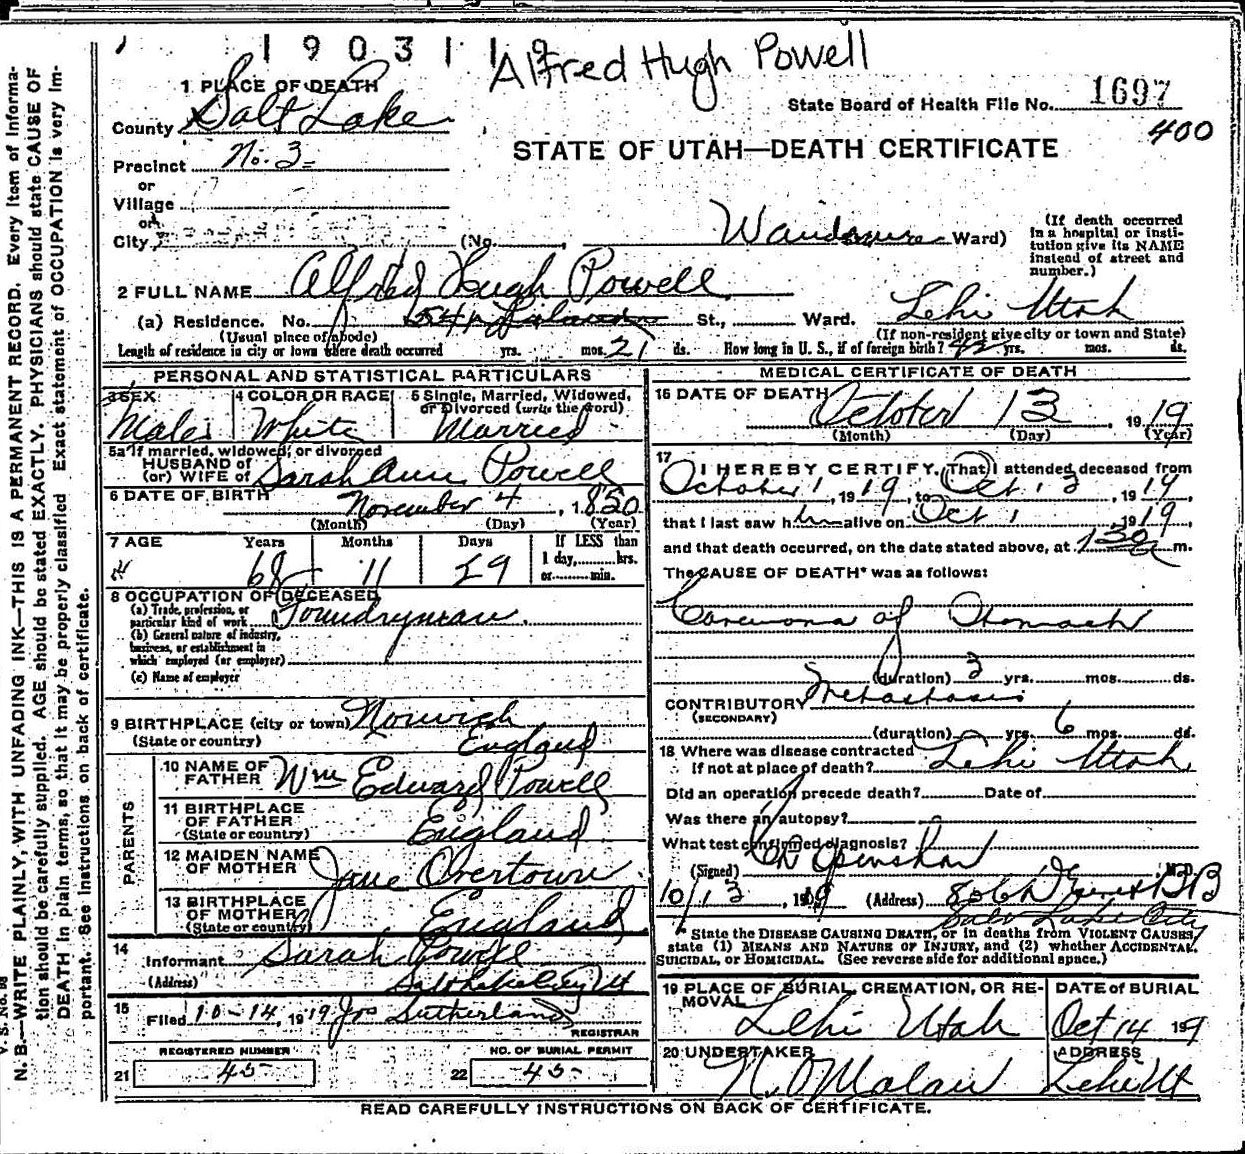 190311
Alfred Hugh Powell
1 PLACE OF DEATH
State Board of Health File No. 1697
County Salt Lake
400
Precinct No. 3
STATE OF UTAH—DEATH CERTIFICATE
or
Village
or
City (No. , Ward)
(If death occurred in a hospital or institution give its NAME instead of street and number.)
2 FULL NAME Alfred Hugh Powell
(a) Residence. No. St., Ward. Lehi Utah
(Usual place of abode) (If non-resident give city or town and State)
Length of residence in city or town where death occurred yrs. mos. 21 ds. How long in U. S., if of foreign birth? 42 yrs. mos. ds.
PERSONAL AND STATISTICAL PARTICULARS
3 SEX 4 COLOR OR RACE 5 Single, Married, Widowed, or Divorced (write the word)
Male White Married
5a If married, widowed, or divorced
HUSBAND of
(or) WIFE of Sarah Ann Powell
6 DATE OF BIRTH November 4, 1850
(Month) (Day) (Year)
7 AGE Years Months Days If LESS than
1 day, hrs.
or min.
68 11
8 OCCUPATION OF DECEASED
(a) Trade, profession, or
particular kind of work Foundryman.
(b) General nature of industry,
business, or establishment in
which employed (or employer)
(c) Name of employer
9 BIRTHPLACE (city or town) Norwich
(State or country) England
PARENTS
10 NAME OF
FATHER Wm Edward Powell
11 BIRTHPLACE
OF FATHER
(State or country) England
12 MAIDEN NAME
OF MOTHER Jane Overtown
13 BIRTHPLACE
OF MOTHER
(State or country) England
14
Informant Sarah Powell
(Address) Salt Lake City Ut
15
Filed 10-14, 1919 Jos Sutherland
REGISTRAR
REGISTERED NUMBER NO. OF BURIAL PERMIT
21 45 22 45
MEDICAL CERTIFICATE OF DEATH
16 DATE OF DEATH October 13 1919
(Month) (Day) (Year)
17
I HEREBY CERTIFY, That I attended deceased from
October 1, 1919, to Oct 13, 1919,
that I last saw him alive on Oct 1 1919,
and that death occurred, on the date stated above, at 130 a m.
The CAUSE OF DEATH* was as follows:
Carcinoma of Stomach
(duration) 2 yrs. mos. ds.
CONTRIBUTORY Metastasis
(SECONDARY)
(duration) yrs. 6 mos. ds.
18 Where was disease contracted
If not at place of death? Lehi Utah
Did an operation precede death? Date of
Was there an autopsy?
What test confirmed diagnosis?
(Signed) Openshaw, M.D.
10/13, 1919 (Address)
Salt Lake City
* State the DISEASE CAUSING DEATH, or in deaths from VIOLENT CAUSES,
state (1) MEANS AND NATURE OF INJURY, and (2) whether ACCIDENTAL,
SUICIDAL, or HOMICIDAL. (See reverse side for additional space.)
19 PLACE OF BURIAL, CREMATION, OR RE- DATE of BURIAL
MOVAL
Lehi Utah Oct 14 1919
20 UNDERTAKER ADDRESS
Lehi Ut
READ CAREFULLY INSTRUCTIONS ON BACK OF CERTIFICATE.
V. S. No. 98
N. B.—WRITE PLAINLY, WITH UNFADING INK—THIS IS A PERMANENT RECORD. Every item of informa-
tion should be carefully supplied. AGE should be stated EXACTLY. PHYSICIANS should state CAUSE OF
DEATH in plain terms, so that it may be properly classified. Exact statement of OCCUPATION is very im-
portant. See instructions on back of certificate.